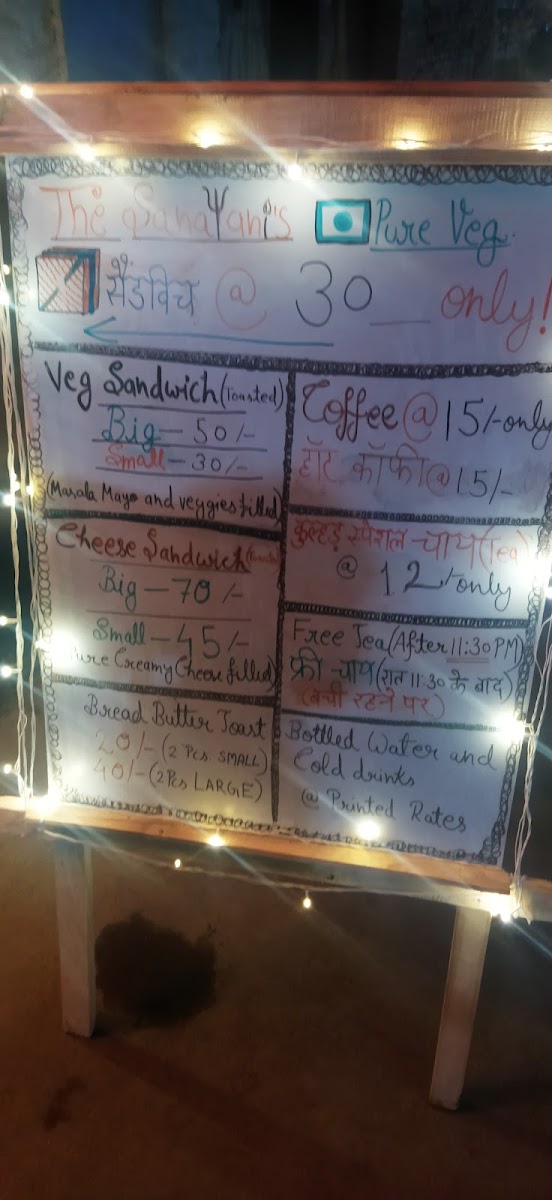 The Sanatani's Pure Veg.
सैंडविच @ 30__ only!
Veg Sandwich (Toasted)
Big - 50/-
Small - 30/-
(Masala Mayo and veggies filled)
Cheese Sandwich
Big - 70/-
Small - 45/-
Pure Creamy Cheese filled)
Bread Butter Toast
20/- (2 Pcs SMALL)
40/- (2 Pcs LARGE)
Coffee @ 15/- only
हॉट कॉफी @ 15/-
कुल्हड़ स्पेशल चाय (Tea)
@ 12/- only
Free Tea (After 11:30 PM)
फ्री चाय (रात 11:30 के बाद)
(बची रहने पर)
Bottled Water and
Cold drinks
@ Printed Rates